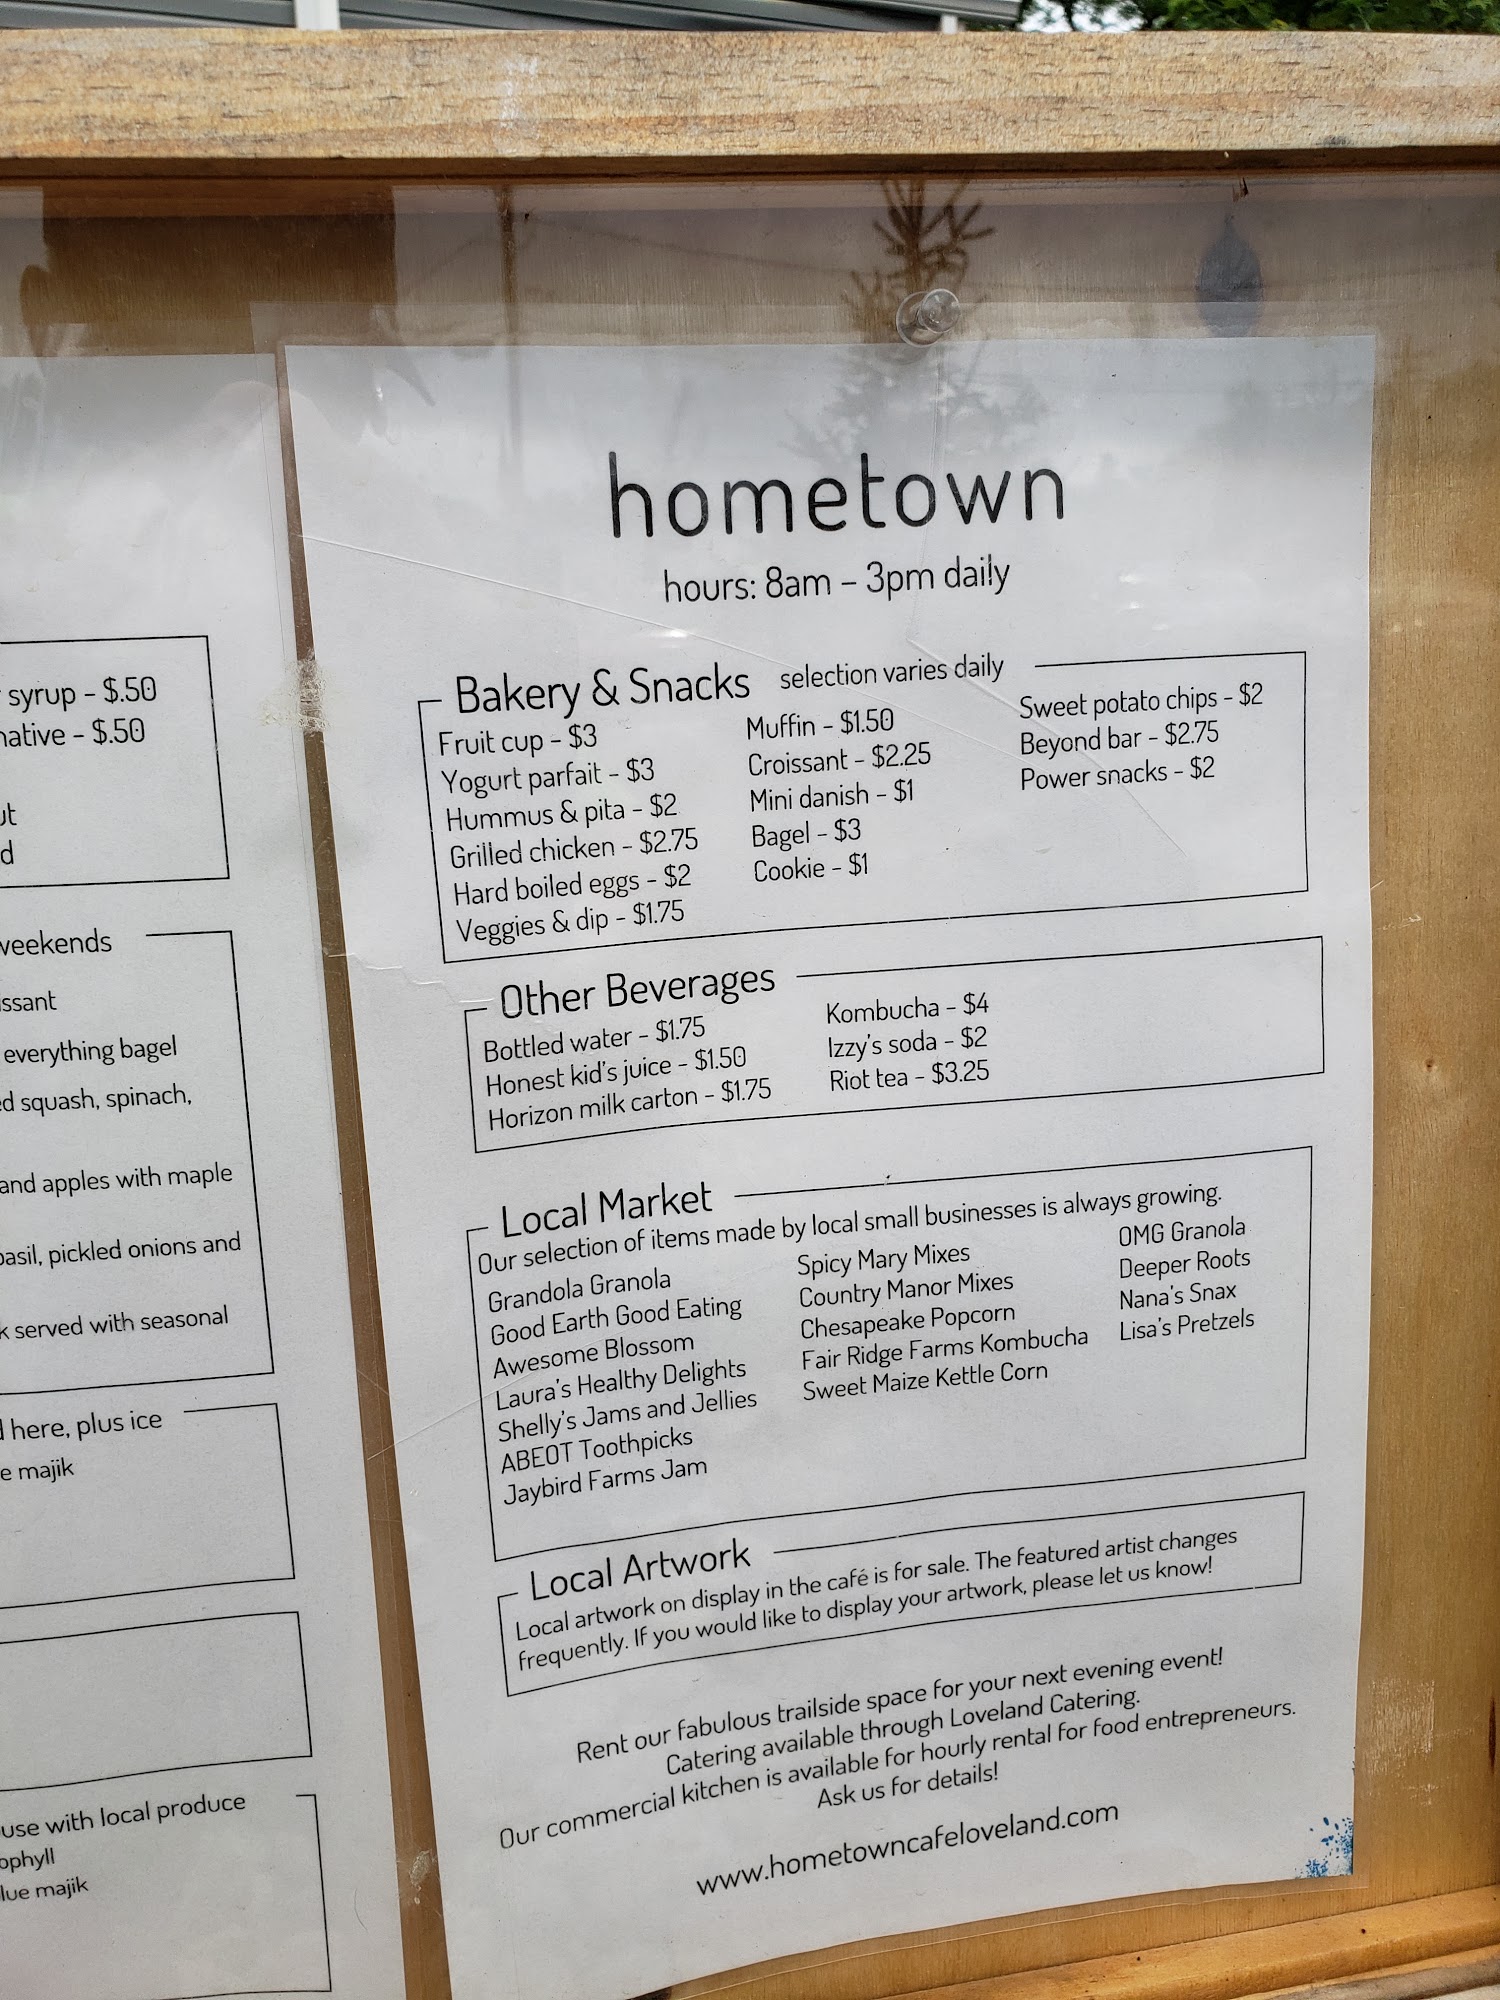 syrup - $.50
native - $.50
weekends
everything bagel
squash, spinach,
and apples with maple
basil, pickled onions and
served with seasonal
here, plus ice
majik
use with local produce
majik
hometown
hours: 8am – 3pm daily
Bakery & Snacks selection varies daily
Fruit cup - $3
Yogurt parfait - $3
Hummus & pita - $2
Grilled chicken - $2.75
Hard boiled eggs - $2
Veggies & dip - $1.75
Muffin - $1.50
Croissant - $2.25
Mini danish - $1
Bagel - $3
Cookie - $1
Sweet potato chips - $2
Beyond bar - $2.75
Power snacks - $2
Other Beverages
Bottled water - $1.75
Honest kid's juice - $1.50
Horizon milk carton - $1.75
Kombucha - $4
Izzy's soda - $2
Riot tea - $3.25
Local Market
Our selection of items made by local small businesses is always growing.
Grandola Granola
Good Earth Good Eating
Awesome Blossom
Laura's Healthy Delights
Shelly's Jams and Jellies
ABEOT Toothpicks
Jaybird Farms Jam
Spicy Mary Mixes
Country Manor Mixes
Chesapeake Popcorn
Fair Ridge Farms Kombucha
Sweet Maize Kettle Corn
OMG Granola
Deeper Roots
Nana's Snax
Lisa's Pretzels
Local Artwork
Local artwork on display in the café is for sale. The featured artist changes
frequently. If you would like to display your artwork, please let us know!
Rent our fabulous trailside space for your next evening event!
Catering available through Loveland Catering.
Our commercial kitchen is available for hourly rental for food entrepreneurs.
Ask us for details!
www.hometowncafeloveland.com